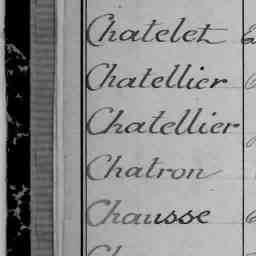 Chatelet
Chatellier
Chatellier
Chatron
Chausse